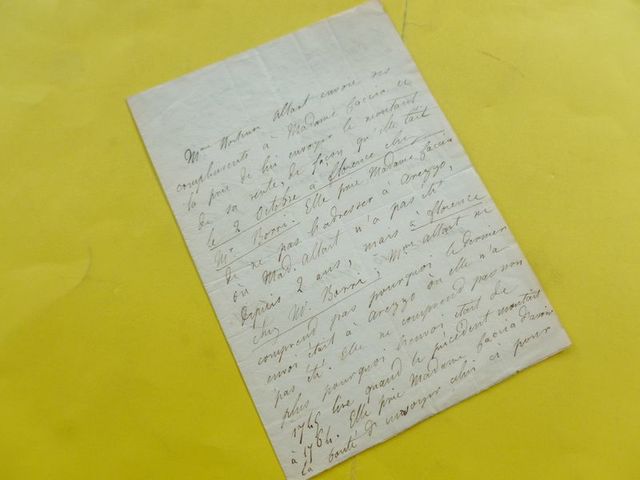 Mme Hortense Allart envoie ses
compliments à Madame Faciea et
la prie de lui envoyer le montant
de sa rente, de façon qu'elle l'ait
le 2 Octobre à florence chez
Mr Borri. Elle prie Madame Faciea
de ne pas l'adresser à Arezzo,
où Mad. Allart n'a pas été,
depuis 2 ans, mais à florence
chez Mr. Borri, Mme Allart ne
comprend pas pourquoi le dernier
envoi était à Arezzo où elle n'a
pas été. Elle ne comprend pas non
plus pourquoi l'envoi était de
1745 lire quand le précédent montait
à 1764. Elle prie Madame Faciea d'avoir
la bonté d'envoyer celui ci pour